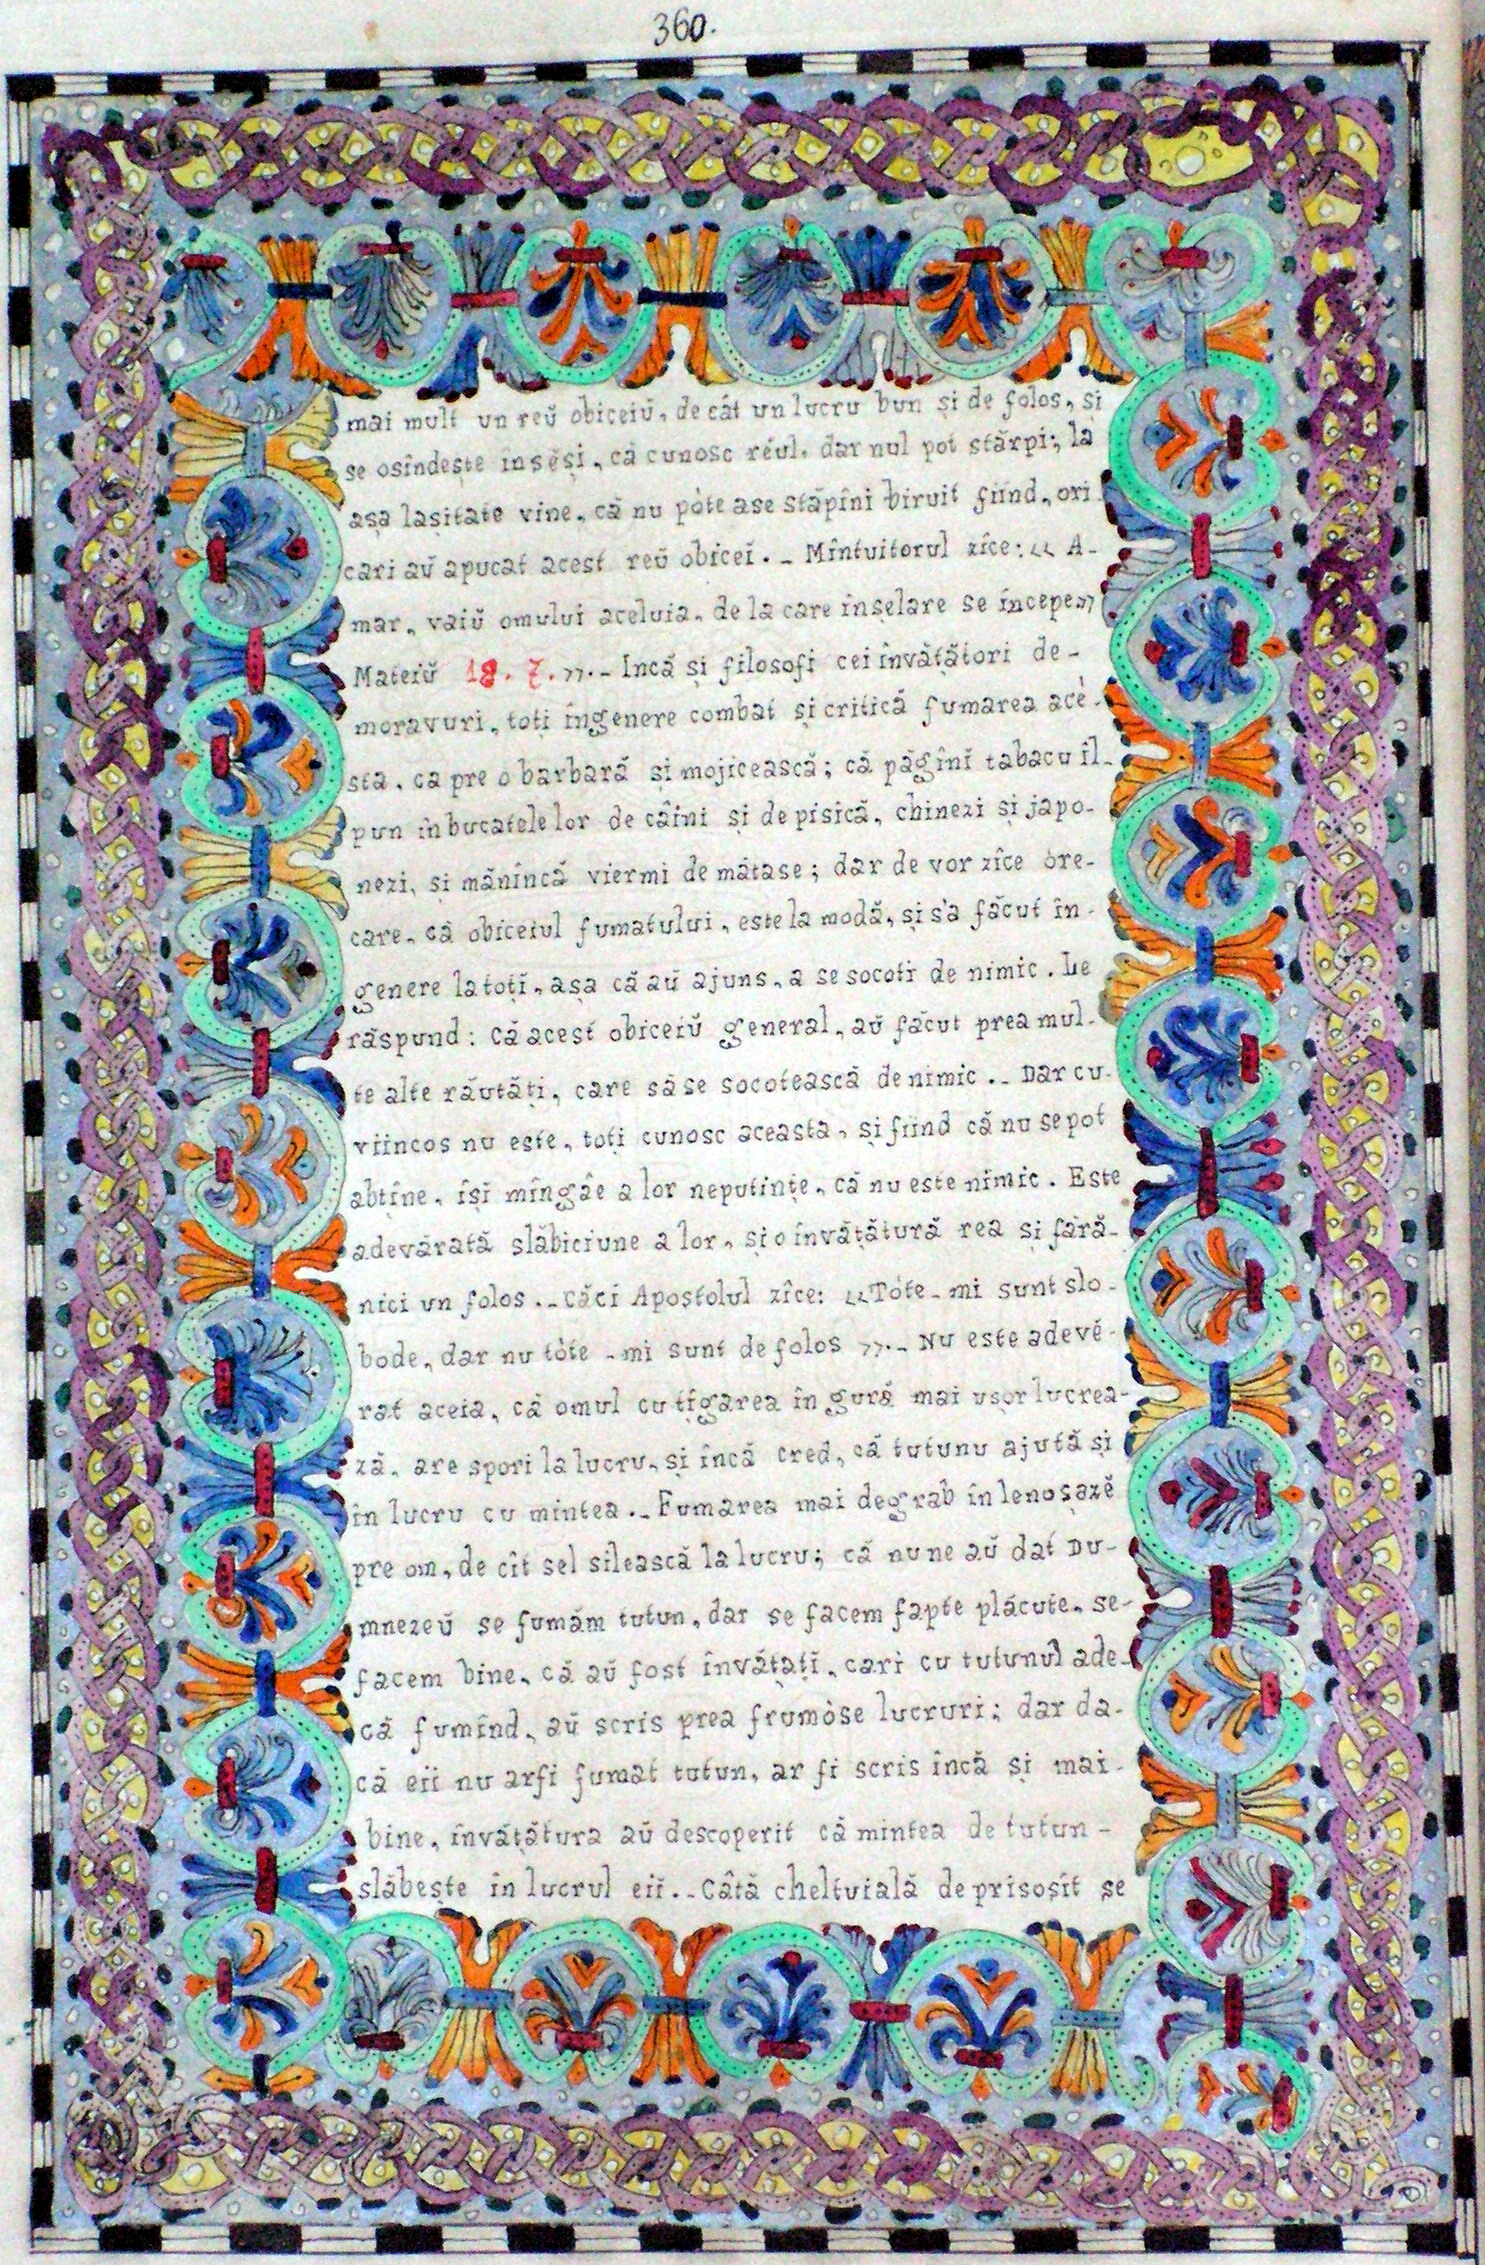 360.
mai mult un reŭ obiceiŭ, de cât un lucru bun și de folos, si
se osîndește însĕși, că cunosc rĕul, dar nul pot stărpi; la
așa lașitate vine, că nu pòte ase stăpîni biruit fiind, ori
cari aŭ apucat acest reŭ obicei._ Mîntuitorul zîce: « A-
mar, vaiŭ omului aceluia, de la care înșelare se începe»
Mateiŭ 18. 7.».- Incă și filosofi cei învățători de-
moravuri, toți îngenere combat și critică fumarea acè-
sta, ca pre o barbară și mojicească; că păgîni tabacu îl-
pun în bucatele lor de câini și de pisică, chinezi și japo-
nezi, și mănîncă viermi de mătase; dar de vor zîce òre-
care, că obiceiul fumatului, este la modă, și s'a făcut în-
genere la toți, așa că aŭ ajuns, a se socoti de nimic. Le
răspund: că acest obiceiŭ general, aŭ făcut prea mul-
te alte răutăți, care să se socotească de nimic._ Dar cu-
viincos nu este, toți cunosc aceasta, și fiind că nu se pot
abtîne, își mîngâe a lor neputințe, că nu este nimic. Este
adevărată slăbiciune a lor, și o învățătură rea și fără-
nici un folos._ Căci Apostolul zîce: «Tòte-mi sunt slo-
bode, dar nu tòte-mi sunt de folos ».- Nu este adevĕ-
rat aceia, că omul cu țîgarea în gură mai ușor lucrea-
ză, are spori la lucru, și încă cred, că tutunu ajută și
în lucru cu mintea._ Fumarea mai degrab în lenoșazĕ
pre om, de cît sel silească la lucru; că nu ne aŭ dat Du-
mnezeŭ se fumăm tutun, dar se facem fapte plăcute, se-
facem bine, că aŭ fost învățați, cari cu tutunul ade-
că fumînd, aŭ scris prea frumòse lucruri; dar da-
că eii nu arfi fumat tutun, ar fi scris încă și mai-
bine, învățătura aŭ descoperit că mintea de tutun-
slăbește în lucrul eii._ Câtă cheltuială de prisosit se